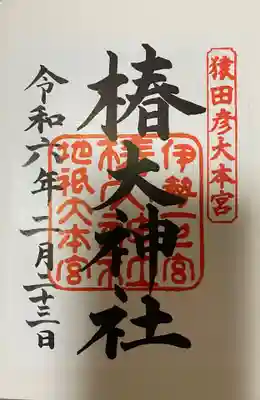 猿田彦大本宮
椿大神社
伊勢一之宮
椿大神社
地祇大本宮
令和六年二月二十三日